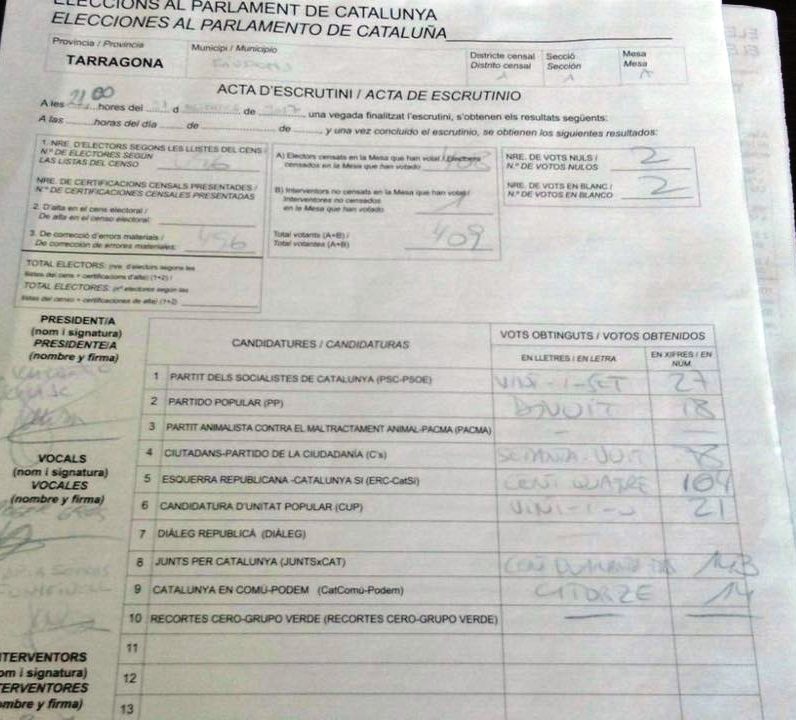 ELECCIONS AL PARLAMENT DE CATALUNYA
ELECCIONES AL PARLAMENTO DE CATALUÑA
Província / Provincia
TARRAGONA
Municipi / Municipio
Districte censal
Distrito censal
A
Secció
Sección
A
Mesa
Mesa
A
ACTA D'ESCRUTINI / ACTA DE ESCRUTINIO
A les 21,00 hores del 21 d de 2017, una vegada finalitzat l'escrutini, s'obtenen els resultats següents:
A las horas del día de de y una vez concluido el escrutinio, se obtienen los siguientes resultados:
1. NRE. D'ELECTORS SEGONS LES LLISTES DEL CENS /
N.º DE ELECTORES SEGÚN
LAS LISTAS DEL CENSO
NRE. DE CERTIFICACIONS CENSALS PRESENTADES /
N.º DE CERTIFICACIONES CENSALES PRESENTADAS
2. D'alta en el cens electoral /
De alta en el censo electoral:
3. De correcció d'errors materials /
De corrección de errores materiales: 496
TOTAL ELECTORS: (nre. d'electors segons les
llistes del cens + certificacions d'alta) (1+2) /
TOTAL ELECTORES: (nº electores según las
listas del censo + certificaciones de alta) (1+2)
A) Electors censats en la Mesa que han votat / Electores
censados en la Mesa que han votado 408
B) Interventors no censats en la Mesa que han votat /
Interventores no censados
en la Mesa que han votado 1
Total votants (A+B) /
Total votantes (A+B) 409
NRE. DE VOTS NULS /
N.º DE VOTOS NULOS 2
NRE. DE VOTS EN BLANC /
N.º DE VOTOS EN BLANCO 2
PRESIDENT/A
(nom i signatura)
PRESIDENTE/A
(nombre y firma)
VOCALS
(nom i signatura)
VOCALES
(nombre y firma)
INTERVENTORS
(nom i signatura)
INTERVENTORES
(nombre y firma)
CANDIDATURES / CANDIDATURAS
VOTS OBTINGUTS / VOTOS OBTENIDOS
EN LLETRES / EN LETRA
EN XIFRES / EN
NÚM.
1 PARTIT DELS SOCIALISTES DE CATALUNYA (PSC-PSOE) VINT-I-SET 27
2 PARTIDO POPULAR (PP) DIVUIT 18
3 PARTIT ANIMALISTA CONTRA EL MALTRACTAMENT ANIMAL-PACMA (PACMA) — —
4 CIUTADANS-PARTIDO DE LA CIUDADANÍA (C's) SETANTA-VUIT 78
5 ESQUERRA REPUBLICANA -CATALUNYA SÍ (ERC-CatSí) CENT QUATRE 104
6 CANDIDATURA D'UNITAT POPULAR (CUP) VINT-I-U 21
7 DIÀLEG REPUBLICÀ (DIÀLEG)
8 JUNTS PER CATALUNYA (JUNTSxCAT) CENT QUARANTA TRES 143
9 CATALUNYA EN COMÚ-PODEM (CatComú-Podem) CATORZE 14
10 RECORTES CERO-GRUPO VERDE (RECORTES CERO-GRUPO VERDE) — —
11
12
13